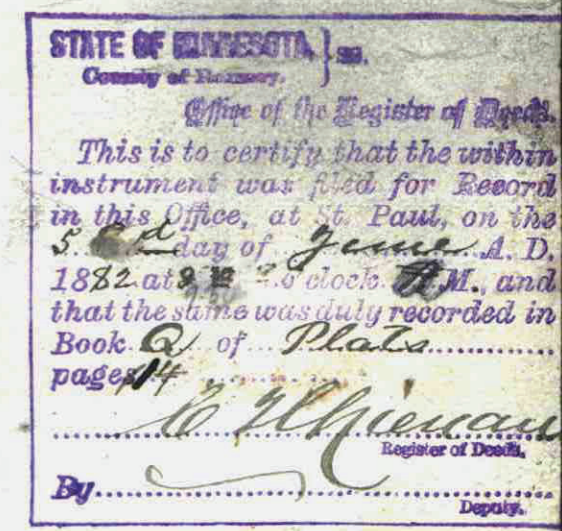 STATE OF MINNESOTA, } ss.
County of Ramsey.
Office of the Register of Deeds.
This is to certify that the within
instrument was filed for Record
in this Office, at St. Paul, on the
5 day of June A. D.
1882 at o'clock A.M., and
that the same was duly recorded in
Book Q of Plats
page 14
Register of Deeds.
By
Deputy.